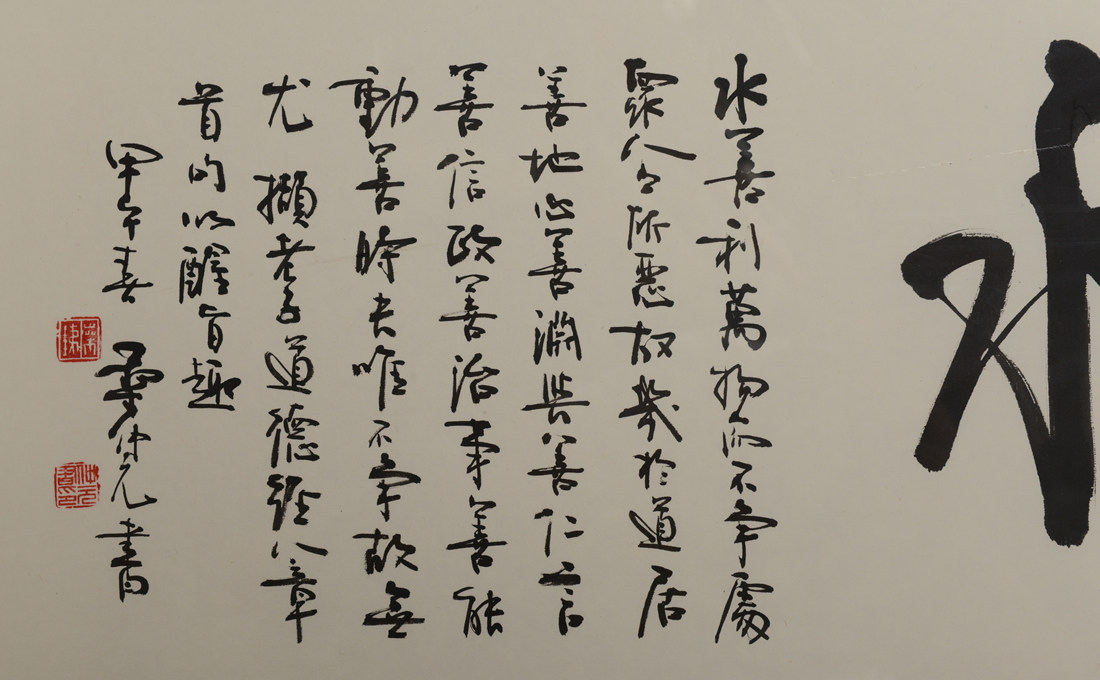 水善利萬物而不爭處
眾人之所惡故幾於道居
善地心善淵與善仁言
善信政善治事善能
動善時夫唯不爭故無
尤 擷老子道德經八章
首句以醒旨趣
甲午春 仲元書